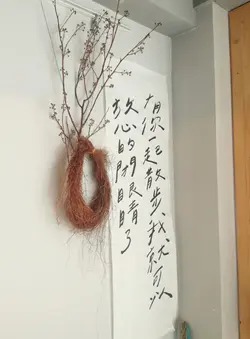 有你一起散步，我就可以
放心的閉眼睛了